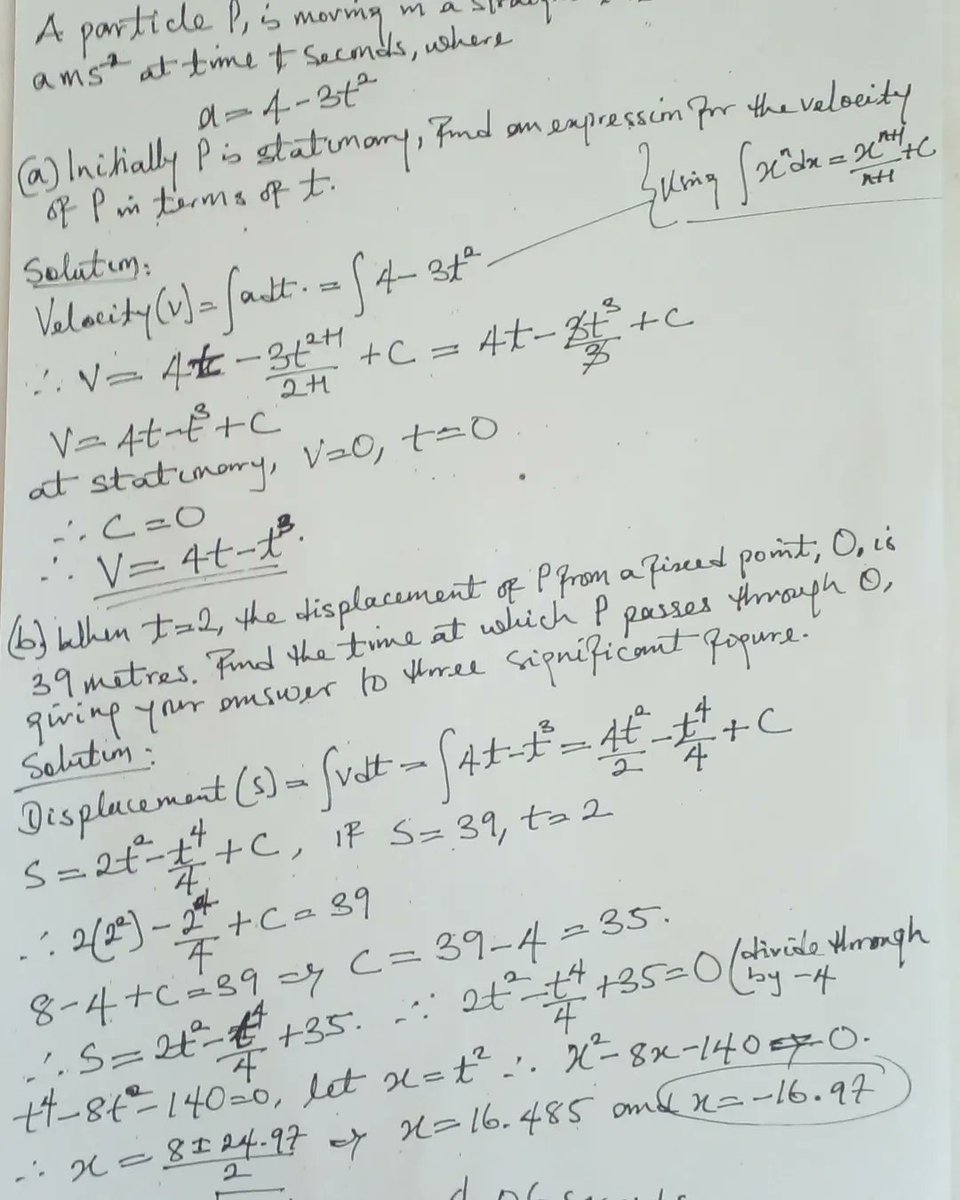 A particle P, is moving in a
a ms² at time t seconds, where
a = 4 - 3t²
(a) Initially P is stationary, Find an expression for the velocity
of P in terms of t.
{Using ∫xⁿdx = xⁿ⁺¹/n+1 + C
Solution:
Velocity (v) = ∫adt. = ∫4 - 3t²
∴ V = 4t - 3t²⁺¹/2+1 + C = 4t - 3t³/3 + C
V = 4t - t³ + C
at stationary, V=0, t=0
∴ C = 0
∴ V = 4t - t³.
(b) When t=2, the displacement of P from a fixed point, O, is
39 metres. Find the time at which P passes through O,
giving your answer to three significant figure.
Solution:
Displacement (s) = ∫vdt = ∫4t - t³ = 4t²/2 - t⁴/4 + C
S = 2t² - t⁴/4 + C, if S = 39, t = 2
∴ 2(2²) - 2⁴/4 + C = 39
8 - 4 + C = 39 ⇒ C = 39 - 4 = 35.
∴ S = 2t² - t⁴/4 + 35. ∴ 2t² - t⁴/4 + 35 = 0 (divide through by -4
t⁴ - 8t² - 140 = 0, let x = t² ∴ x² - 8x - 140 = 0.
∴ x = 8 ± 24.97/2 ⇒ x = 16.485 and x = -16.97